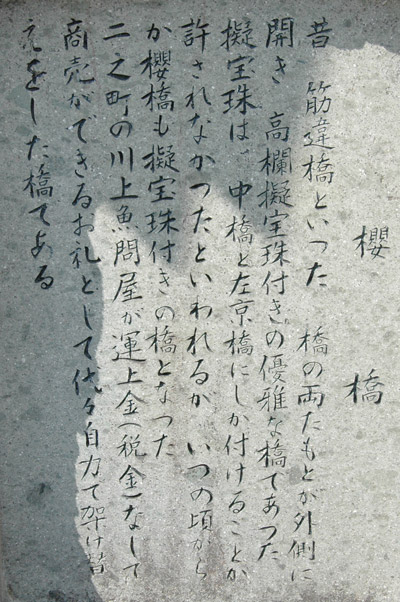 櫻橋
昔 筋違橋といった 橋の両たもとが外側に
開き 高欄擬宝珠付きの優雅な橋であつた
擬宝珠は、中橋と左京橋にしか付けることか
許されなかつたといわれるが いつの頃から
か櫻橋も擬宝珠付きの橋となつた
二之町の川上魚問屋が運上金(税金)なして
商売ができるお礼として代々自力て架け替
えをした橋てある